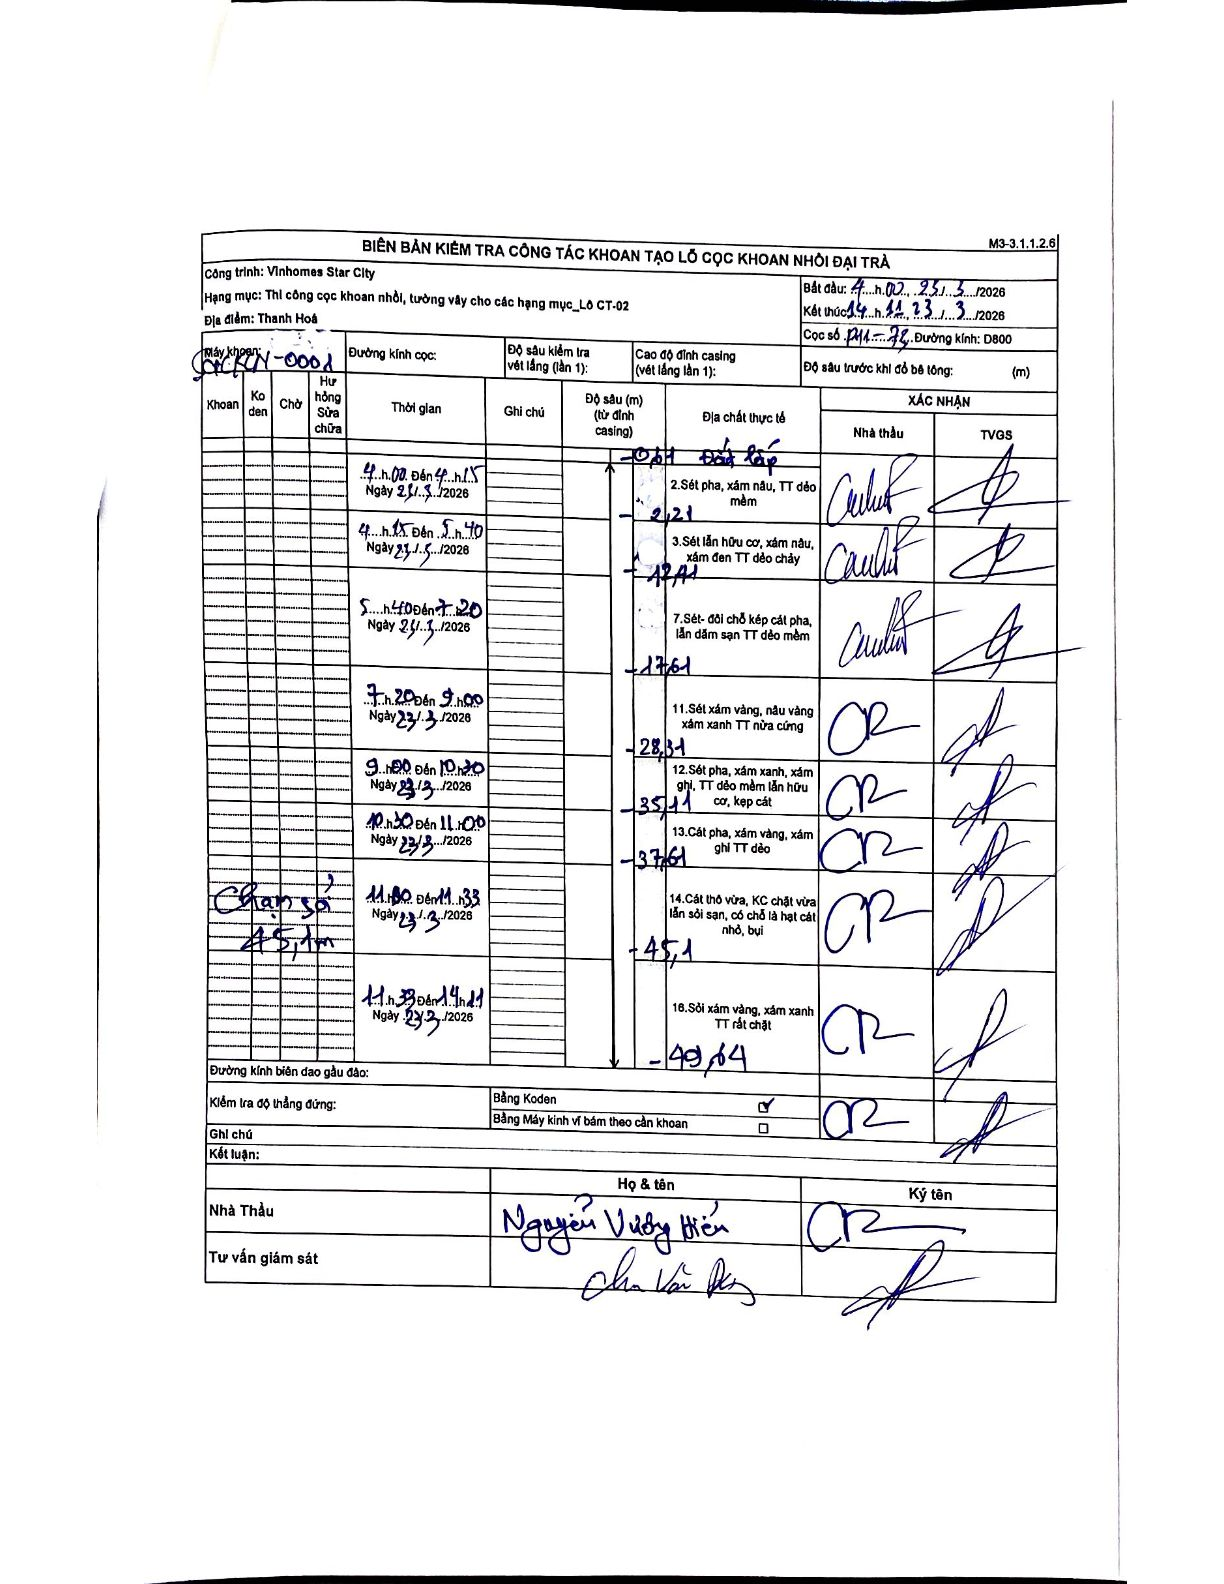 M3-3.1.1.2.6
BIÊN BẢN KIỂM TRA CÔNG TÁC KHOAN TẠO LỖ CỌC KHOAN NHỒI ĐẠI TRÀ
Công trình: Vinhomes Star City
Hạng mục: Thi công cọc khoan nhồi, tường vây cho các hạng mục_Lô CT-02
Địa điểm: Thanh Hoá
Bắt đầu: 4 h 00, 23/ 3 /2026
Kết thúc 14 h 11, 23 / 3 /2026
Cọc số Đường kính: D800
Máy khoan: -0001
Đường kính cọc:
Độ sâu kiểm tra vét lắng (lần 1):
Cao độ đỉnh casing (vét lắng lần 1):
Độ sâu trước khi đổ bê tông: (m)
Khoan
Ko den
Chờ
Hư hỏng Sửa chữa
Thời gian
Ghi chú
Độ sâu (m) (từ đỉnh casing)
Địa chất thực tế
XÁC NHẬN
Nhà thầu
TVGS
-0,61 Đất lấp
4 h 00 Đến 4 h 15
Ngày 23/ 3 /2026
2.Sét pha, xám nâu, TT dẻo mềm
- 2,21
4 h 15 Đến 5 h 40
Ngày 23/ 3 /2026
3.Sét lẫn hữu cơ, xám nâu, xám đen TT dẻo chảy
5 h 40 Đến 7 h 20
Ngày 23/ 3 /2026
7.Sét- đôi chỗ kép cát pha, lẫn dăm sạn TT dẻo mềm
-17,61
7 h 20 Đến 9 h 00
Ngày 23/ 3 /2026
11.Sét xám vàng, nâu vàng xám xanh TT nửa cứng
-28,31
9 h 00 Đến 10 h 30
Ngày 23/ 3 /2026
12.Sét pha, xám xanh, xám ghi, TT dẻo mềm lẫn hữu cơ, kẹp cát
-35,11
10 h 30 Đến 11 h 00
Ngày 23/ 3 /2026
13.Cát pha, xám vàng, xám ghi TT dẻo
-37,61
Chạm sỏi
45,1m
11 h 00 Đến 11 h 33
Ngày 23 / 3 /2026
14.Cát thô vừa, KC chặt vừa lẫn sỏi sạn, có chỗ là hạt cát nhỏ, bụi
-45,1
11 h 33 Đến 14 h 11
Ngày 23/3 /2026
16.Sỏi xám vàng, xám xanh TT rất chặt
-49,64
Đường kính biên dao gầu đào:
Kiểm tra độ thẳng đứng:
Bằng Koden
Bằng Máy kinh vĩ bám theo cần khoan
Ghi chú
Kết luận:
Họ & tên
Ký tên
Nhà Thầu
Nguyễn Vương Hiếu
Tư vấn giám sát